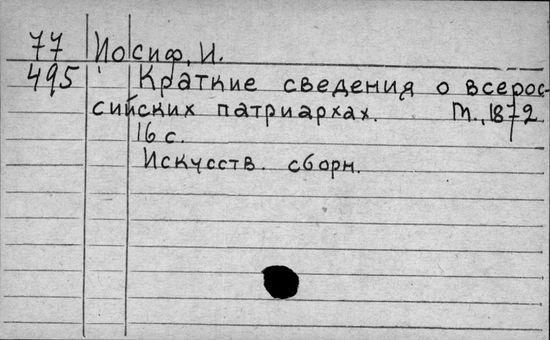 77 Иосиф, И.
495 Краткие сведения о всерос-
сийских патриархах. М., 1872.
16 с.
Искусств. сборн.